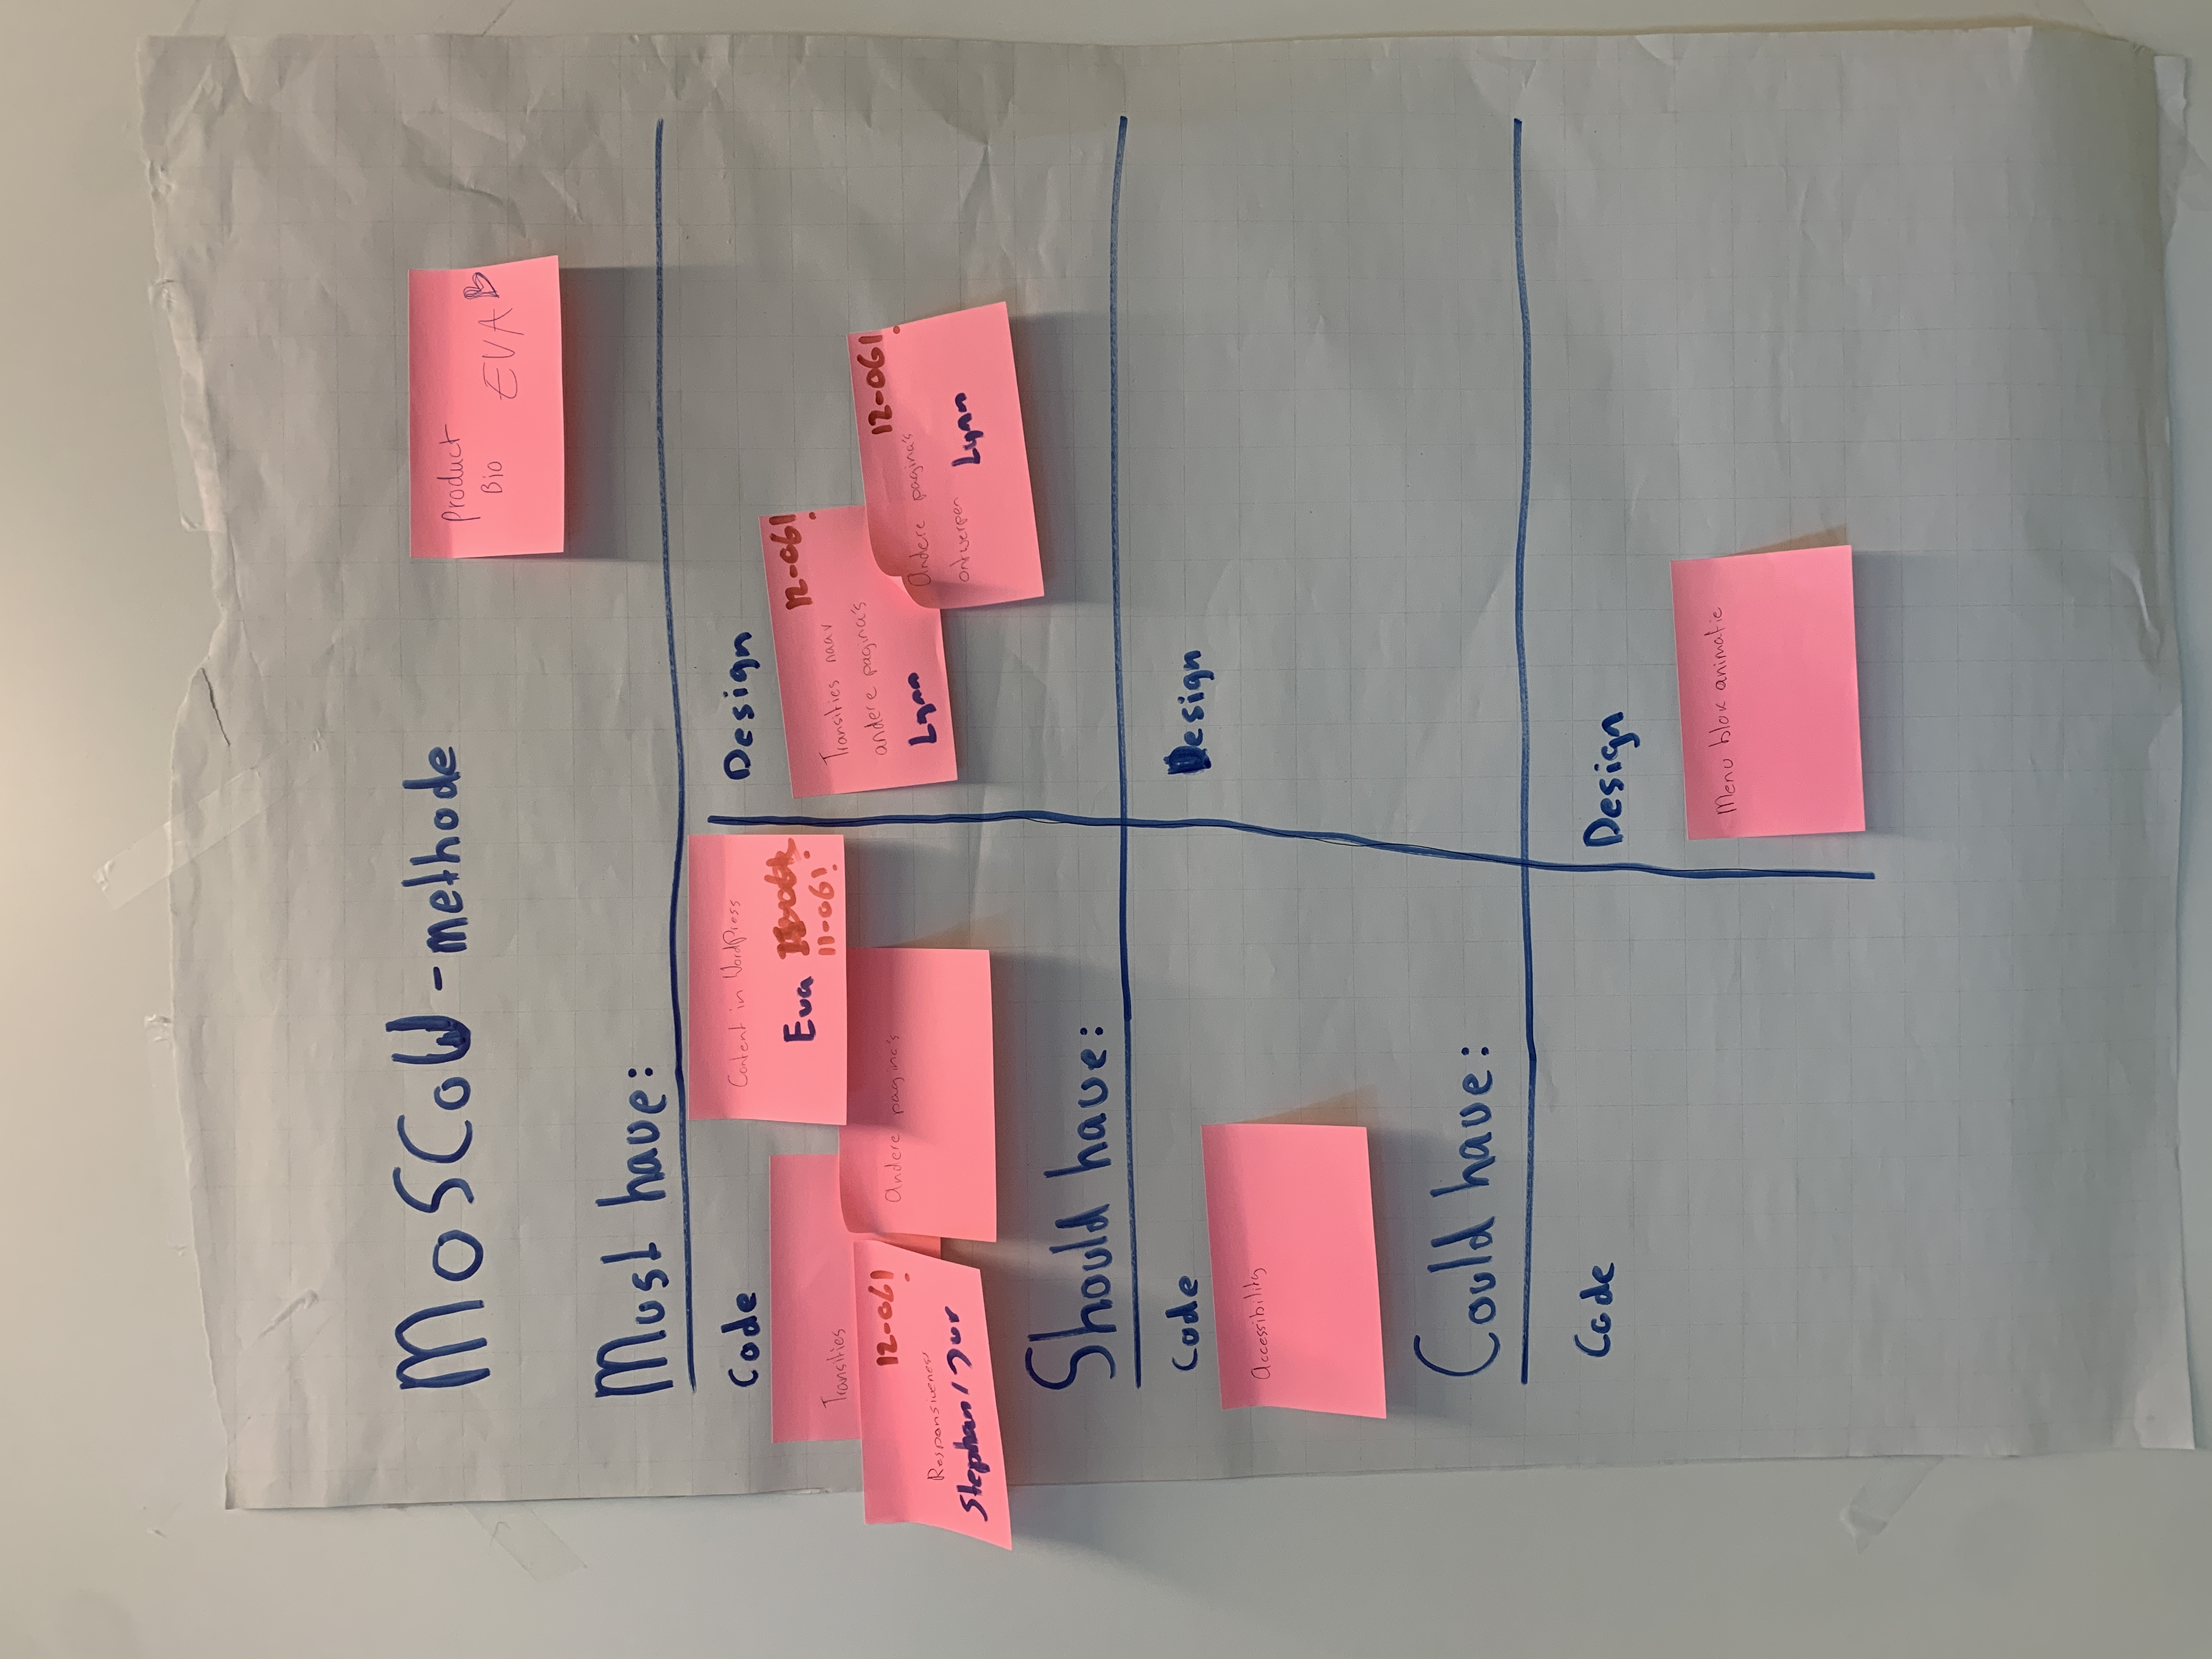 MoSCoW-methode
Product
Bio
EVA
Must have:
Code
Content in WordPress
Eva
11-06!
Transities
12-06!
Responsiveness
Stephan/Jur
Andere pagina's
Design
12-06!
Transities naar
andere pagina's
Lynn
12-06!
Andere pagina's
ontwerpen Lynn
Should have:
Code
Accessibility
Design
Could have:
Code
Design
Menu blok animatie